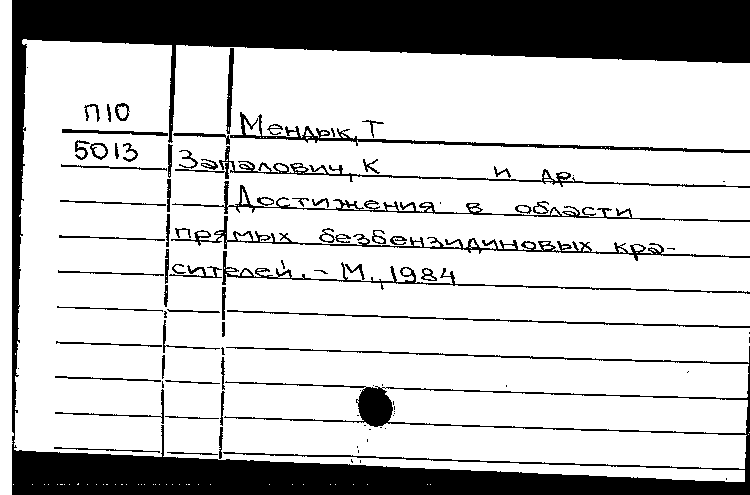 П10
Мендык, Т
5013
Запалович, К и др.
Достижения в области
прямых безбензидиновых кра-
сителей. - М., 1984